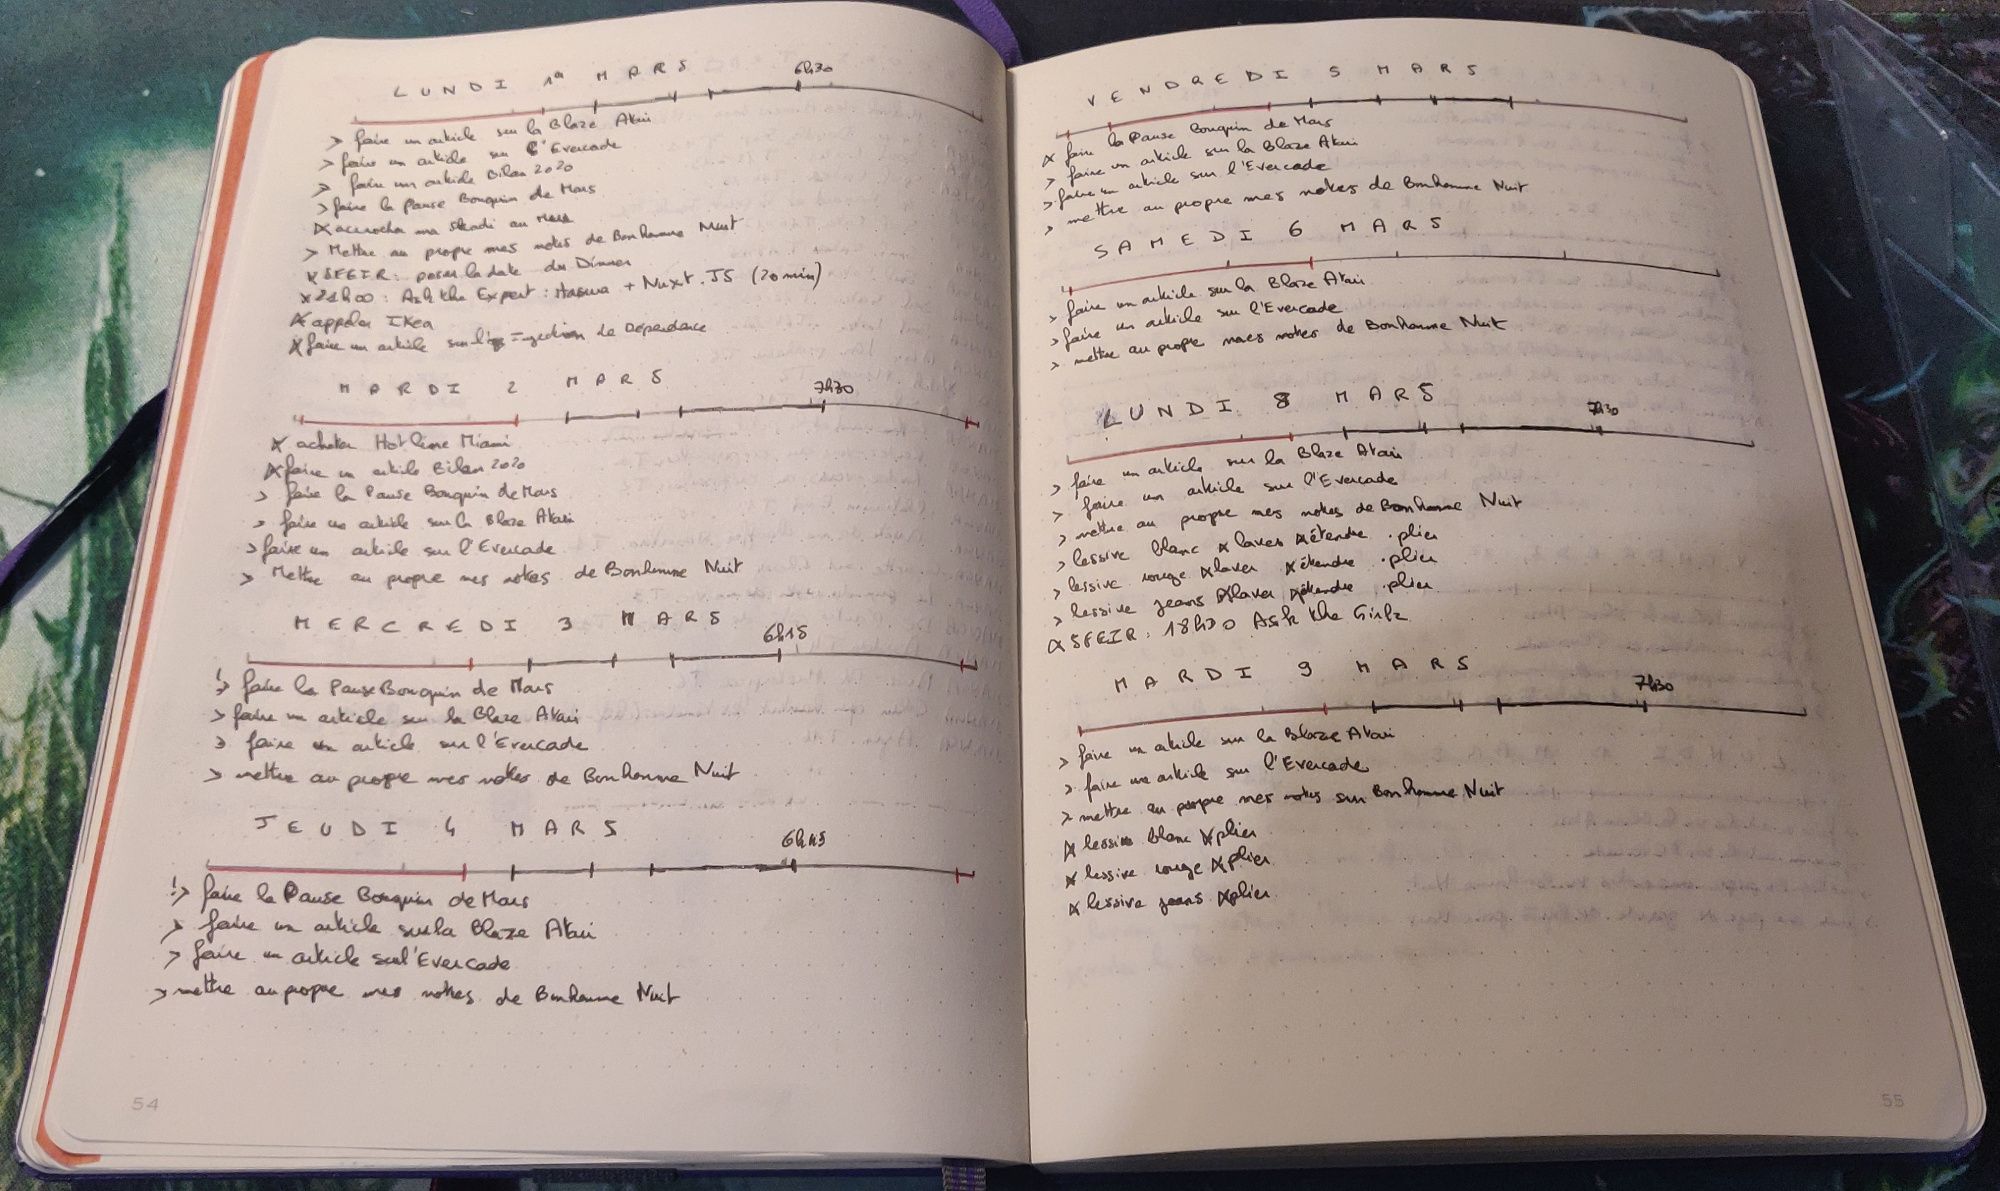 LUNDI 1er MARS
6h30
> faire un article sur la Blaze Atari
> faire un article sur l'Evercade
> faire un article Bilan 2020
> faire la Pause Bouquin de Mars
x accrocher ma skadi au
> Mettre au propre mes notes de Bonhomme Nuit
x SFEIR: poser la date du Dinner
x 21h00: Ask the Expert: Hasura + Nuxt.JS (20min)
x appeler IKEA
x faire un article sur l' Injection de Dépendance
MARDI 2 MARS
7h30
x acheter Hotline Miami
x faire un article Bilan 2020
> faire la Pause Bouquin de Mars
> faire un article sur la Blaze Atari
> faire un article sur l'Evercade
> Mettre au propre mes notes de Bonhomme Nuit
MERCREDI 3 MARS
6h15
!> faire la Pause Bouquin de Mars
> faire un article sur la Blaze Atari
> faire un article sur l'Evercade
> mettre au propre mes notes de Bonhomme Nuit
JEUDI 4 MARS
6h45
!> faire la Pause Bouquin de Mars
> faire un article sur la Blaze Atari
> faire un article sur l'Evercade
> mettre au propre mes notes de Bonhomme Nuit
54
VENDREDI 5 MARS
x faire la Pause Bouquin de Mars
> faire un article sur la Blaze Atari
> faire un article sur l'Evercade
> mettre au propre mes notes de Bonhomme Nuit
SAMEDI 6 MARS
> faire un article sur la Blaze Atari
> faire un article sur l'Evercade
> mettre au propre mes notes de Bonhomme Nuit
LUNDI 8 MARS
7h30
> faire un article sur la Blaze Atari
> faire un article sur l'Evercade
> mettre au propre mes notes de Bonhomme Nuit
> lessive blanc x laver x étendre . plier
> lessive rouge x laver x étendre . plier
> lessive jeans x laver x étendre . plier
x SFEIR: 18h30 Ask the Girlz
MARDI 9 MARS
7h30
> faire un article sur la Blaze Atari
> faire un article sur l'Evercade
> mettre au propre mes notes sur Bonhomme Nuit
x lessive blanc x plier
x lessive rouge x plier
x lessive jeans x plier
55